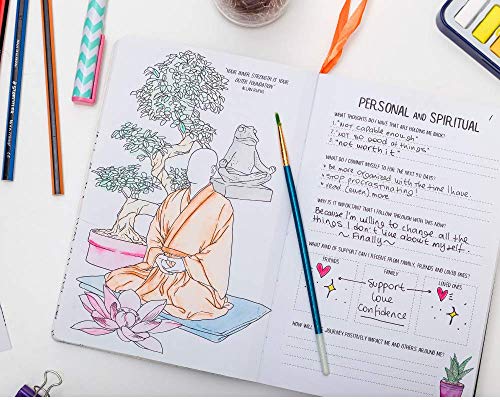 "YOUR INNER STRENGTH IS YOUR
OUTER FOUNDATION"
PERSONAL AND SPIRITUAL
WHAT THOUGHTS DO I HAVE THAT ARE HOLDING ME BACK?
1. "not capable enough"
2. "not so good at things"
3. "not worth it"
WHAT DO I COMMIT MYSELF TO FOR THE NEXT 90 DAYS?
Be more organized with the time I have
STOP procrastinating!
read (even) more
WHY IS IT IMPORTANT THAT I FOLLOW THROUGH WITH THIS NOW?
Because I'm willing to change all the
things I don't like about myself
~ Finally ~
WHAT KIND OF SUPPORT CAN I RECEIVE FROM FAMILY, FRIENDS AND LOVED ONES?
FRIENDS
FAMILY
LOVED ONES
Support
Love
Confidence
HOW WILL JOURNEY POSITIVELY IMPACT ME AND OTHERS AROUND ME?